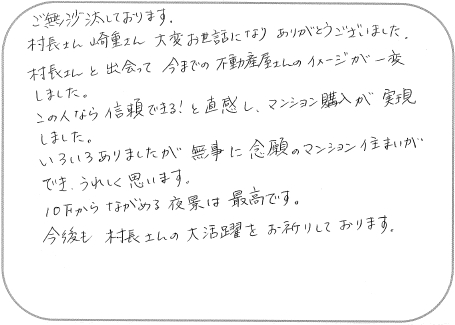 ご無沙汰しております。
村長さん 崎重さん 大変お世話になり ありがとうございました。
村長さんと出会って 今までの不動産屋さんのイメージが一変
しました。
この人なら信頼できる！と直感し、マンション購入が実現
しました。
いろいろありましたが 無事に念願のマンション住まいが
でき、うれしく思います。
10Fからながめる夜景は最高です。
今後も 村長さんの大活躍をお祈りしております。